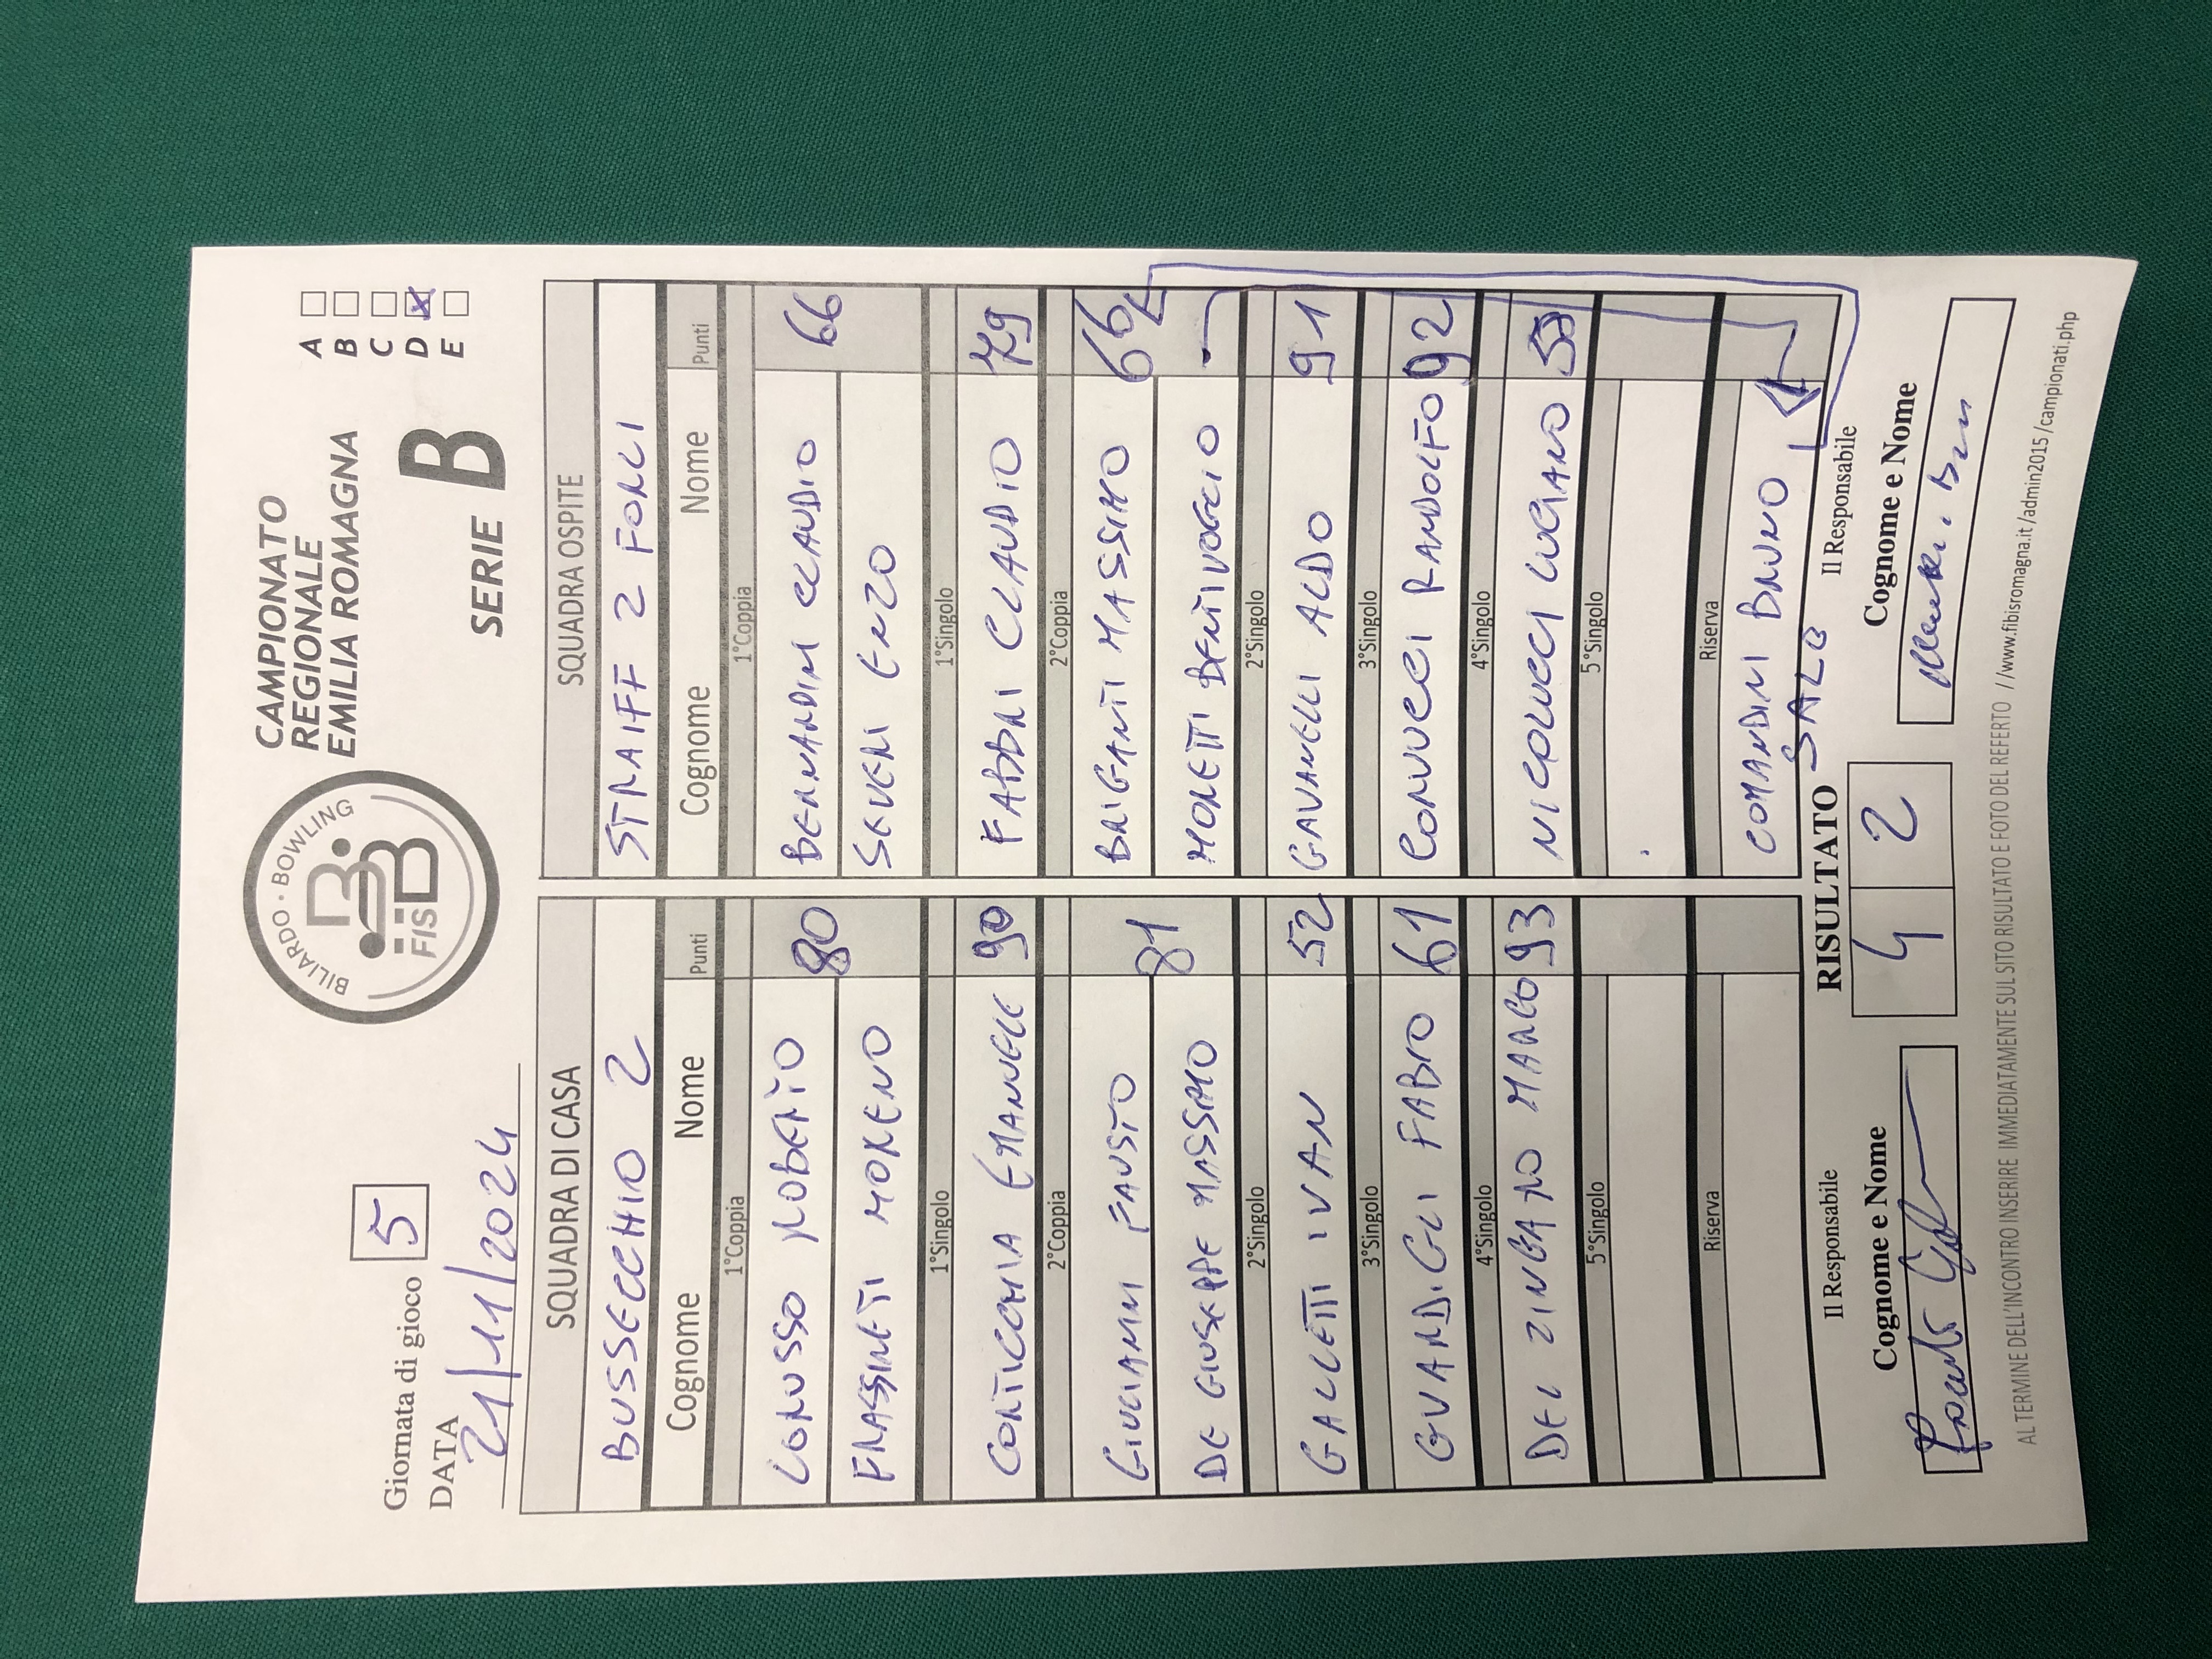 BILIARDO · BOWLING
FISBB
CAMPIONATO
REGIONALE
EMILIA ROMAGNA
SERIE B
A
B
C
D X
E
Giornata di gioco 5
DATA
21/11/2024
SQUADRA DI CASA
BUSSECCHIO 2
Cognome Nome Punti
1°Coppia
LORUSSO ROBERTO 80
FRASSINETI MORENO
1°Singolo
CORTICCHIA EMANUELE 90
2°Coppia
GIULIANINI FAUSTO 81
DE GIUSEPPE MASSIMO
2°Singolo
GALLETTI IVAN 52
3°Singolo
GUARDIGLI FABIO 61
4°Singolo
DEL ZINGARO MARCO 93
5°Singolo
Riserva
SQUADRA OSPITE
STRAIFF 2 FORLI
Cognome Nome Punti
1°Coppia
BERNARDINI CLAUDIO 66
SEVERI ENZO
1°Singolo
FABBRI CLAUDIO 79
2°Coppia
BRIGANTI MASSIMO 66
MORETTI BENTIVOGLIO
2°Singolo
GAVANELLI ALDO 91
3°Singolo
CORVUCCI RANDOLFO 92
4°Singolo
NICOLUCCI LUCIANO
5°Singolo
Riserva
COMANDINI BRUNO
Il Responsabile
Cognome e Nome
RISULTATO
4 2
Il Responsabile
Cognome e Nome
AL TERMINE DELL'INCONTRO INSERIRE IMMEDIATAMENTE SUL SITO RISULTATO E FOTO DEL REFERTO //www.fibisromagna.it/admin2015/campionati.php